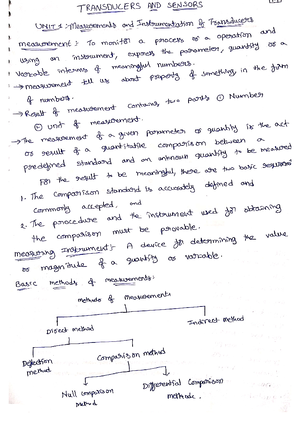 TRANSDUCERS AND SENSORS
UNIT 1 :- Measurements and Instrumentation of Transducers
measurement :- To monitor a process or a operation and
using an instrument, express the parameter, quantity or a
variable interms of meaningful numbers.
→ measurement tell us about property of something in the form
of numbers.
→ Result of measurement contains two parts ① Number
② unit of measurement.
→ The measurement of a given parameter or quantity is the act
or result of a quantitative comparison between a
predefined standard and an unknown quantity to be measured
For the result to be meaningful, there are two basic
1. The comparison standard is accurately defined and
commonly accepted, and
2. The procedure and the instrument used for obtaining
the comparison must be provable.
Measuring Instrument:- A device for determining the value
or magnitude of a quantity or variable.
Basic methods of measurements:
methods of measurements
Direct method Indirect method
Deflection Comparison method
method
Null comparison Differential Comparison
method method.